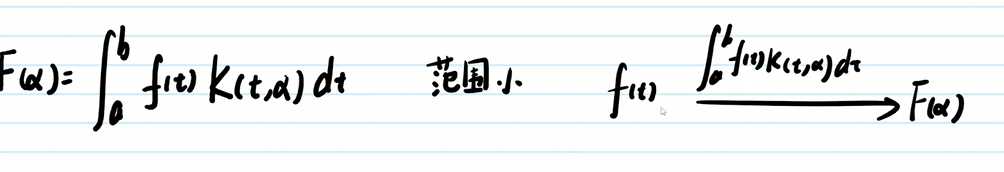 F(α)= ∫_a^b f(t) K(t,α) dt 范围小 f(t) ∫_a^b f(t)K(t,α)dt ⟶ F(α)